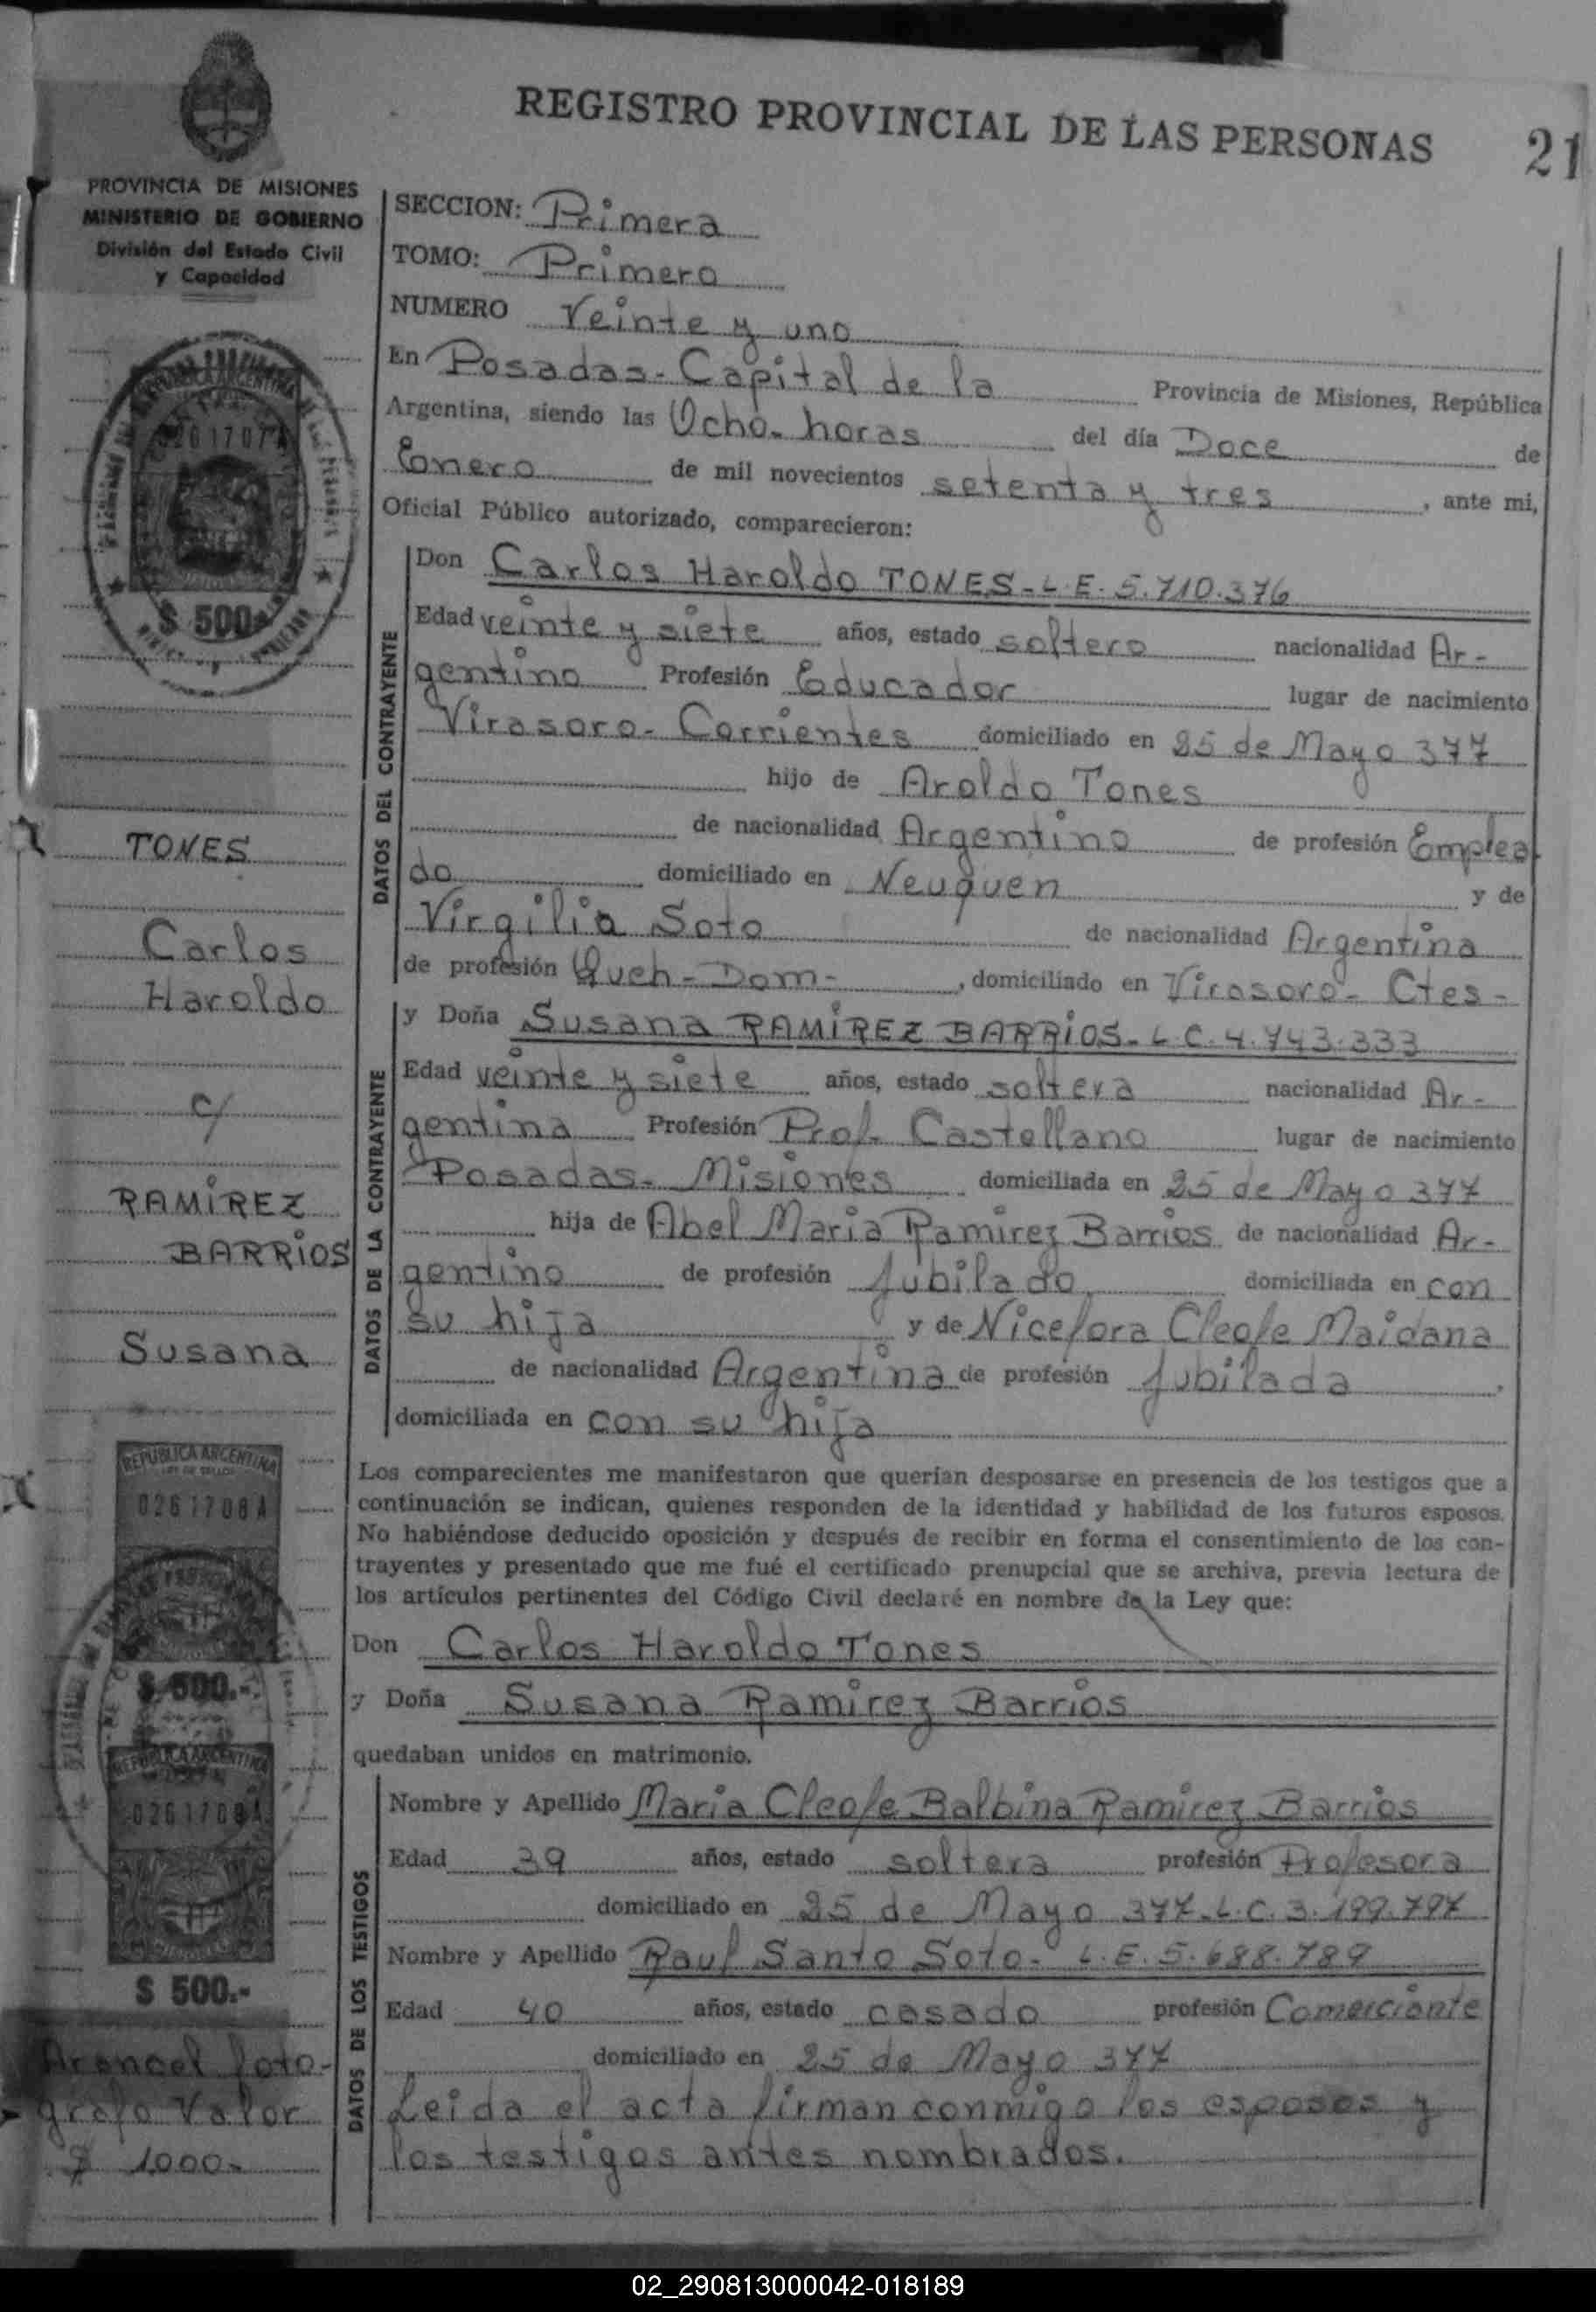 REGISTRO PROVINCIAL DE LAS PERSONAS 21
PROVINCIA DE MISIONES
MINISTERIO DE GOBIERNO
División del Estado Civil
y Capacidad
SECCION: Primera
TOMO: Primero
NUMERO Veinte y uno
En Posadas - Capital de la Provincia de Misiones, República
Argentina, siendo las Ocho - horas del día Doce de
Enero de mil novecientos setenta y tres, ante mi,
Oficial Público autorizado, comparecieron:
DATOS DEL CONTRAYENTE
Don Carlos Haroldo TONES - L.E. 5.710.376
Edad veinte y siete años, estado soltero nacionalidad Ar-
gentino Profesión Educador lugar de nacimiento
Virasoro - Corrientes domiciliado en 25 de Mayo 377
hijo de Aroldo Tones
de nacionalidad Argentino de profesión Emplea
do domiciliado en Neuquen y de
Virgilia Soto de nacionalidad Argentina
de profesión Queh - Dom -, domiciliado en Virasoro - Ctes -
DATOS DE LA CONTRAYENTE
y Doña Susana RAMÍREZ BARRIOS - L.C. 4.743.333
Edad veinte y siete años, estado soltera nacionalidad Ar-
gentina Profesión Prof. Castellano lugar de nacimiento
Posadas - Misiones domiciliada en 25 de Mayo 377
hija de Abel Maria Ramirez Barrios de nacionalidad Ar-
gentino de profesión Jubilado domiciliada en con
su hija y de Nicefora Cleofe Maidana
de nacionalidad Argentina de profesión Jubilada,
domiciliada en con su hija
Los comparecientes me manifestaron que querían desposarse en presencia de los testigos que a
continuación se indican, quienes responden de la identidad y habilidad de los futuros esposos.
No habiéndose deducido oposición y después de recibir en forma el consentimiento de los con-
trayentes y presentado que me fué el certificado prenupcial que se archiva, previa lectura de
los artículos pertinentes del Código Civil declaré en nombre de la Ley que:
Don Carlos Haroldo Tones
y Doña Susana Ramirez Barrios
quedaban unidos en matrimonio.
DATOS DE LOS TESTIGOS
Nombre y Apellido Maria Cleofe Balbina Ramirez Barrios
Edad 39 años, estado soltera profesión Profesora
domiciliado en 25 de Mayo 377 - L.C. 3.199.797
Nombre y Apellido Raul Santo Soto - L.E. 5.688.789
Edad 40 años, estado casado profesión Comerciante
domiciliado en 25 de Mayo 377
Leida el acta firman conmigo los esposos y
los testigos antes nombrados.
REPUBLICA ARGENTINA
0261707A
$ 500.-
TONES
Carlos
Haroldo
c/
RAMÍREZ
BARRIOS
Susana
REPUBLICA ARGENTINA
0261708A
$ 500.-
REPUBLICA ARGENTINA
$ 500.-
Arancel foto-
grafo Valor
$ 1.000-
02_290813000042-018189